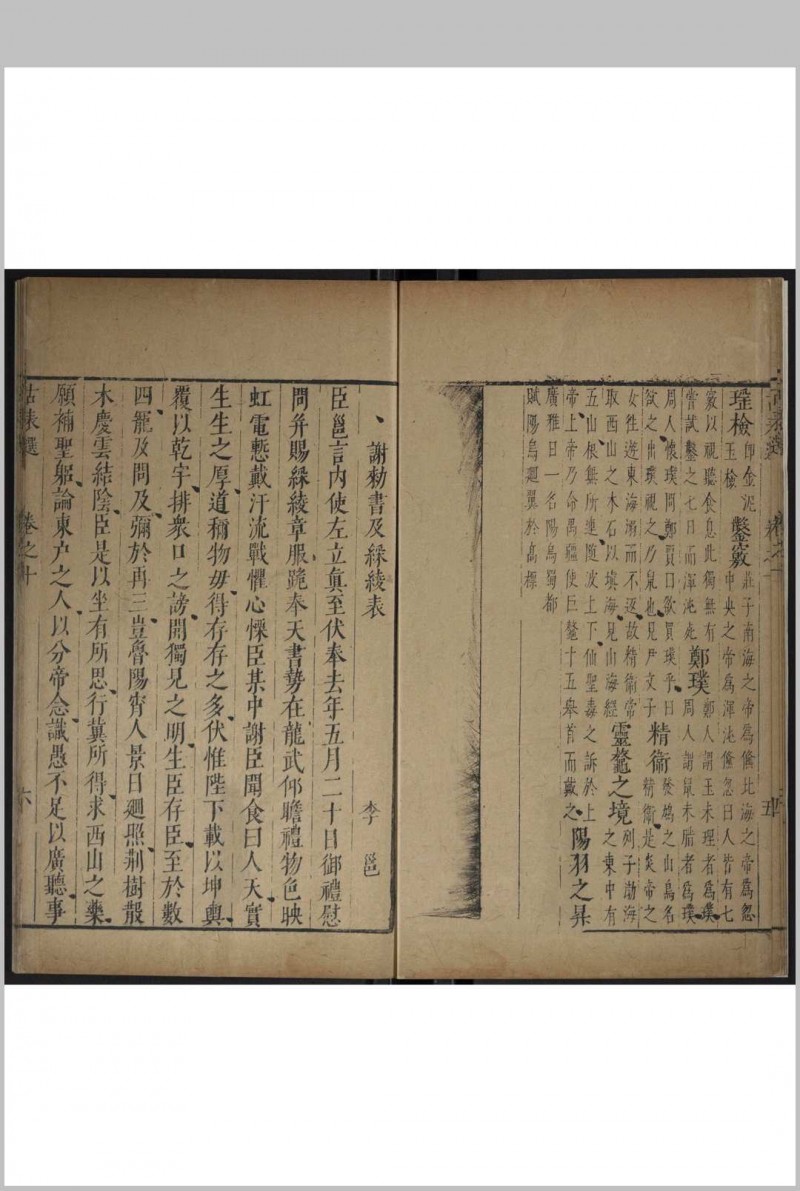 古表選 卷之十 五
瑆檢 印金泥玉檢 鑿竅 莊子南海之帝爲儵北海之帝爲忽中央之帝爲渾沌儵忽曰人皆有七
竅以視聽食息此獨無有嘗試鑿之七日而渾沌死 鄭璞 鄭人謂玉未理者爲璞周人謂鼠未腊者爲璞
周人懷璞問鄭賈曰欲買璞乎曰欲之出璞視之乃鼠也見尹文子 精衛 發鳩之山鳥名精衛是炎帝之
女往遊東海溺而不返故精衛常取西山之木石以填海見山海經 靈鼇之境 列子渤海之東中有
五山根無所連隨波上下仙聖毒之訴於上帝上帝乃命禺疆使巨鼇十五舉首而戴之 陽羽之昇
廣雅日一名陽烏蜀都賦陽烏迴翼於高標
謝勑書及綵綾表
李邕
臣邕言内使左立眞至伏奉去年五月二十日御禮慰
問并賜綵綾章服跪奉天書勢在龍武仰瞻禮物色映
虹電慙戴汗流戰懼心慄臣某中謝臣聞食曰人天實
生生之厚道稱物毋得存存之多伏惟陛下載以坤輿
覆以乾宇排衆口之謗開獨見之明生臣存臣至於數
四寵及問及彌於再三豈魯陽齊人景日廻照荆樹散
木慶雲結陰臣是以坐有所思行冀所得求西山之藥
願補聖躬論東户之人以分帝念識愚不足以廣聽事
古表選 卷之十 六